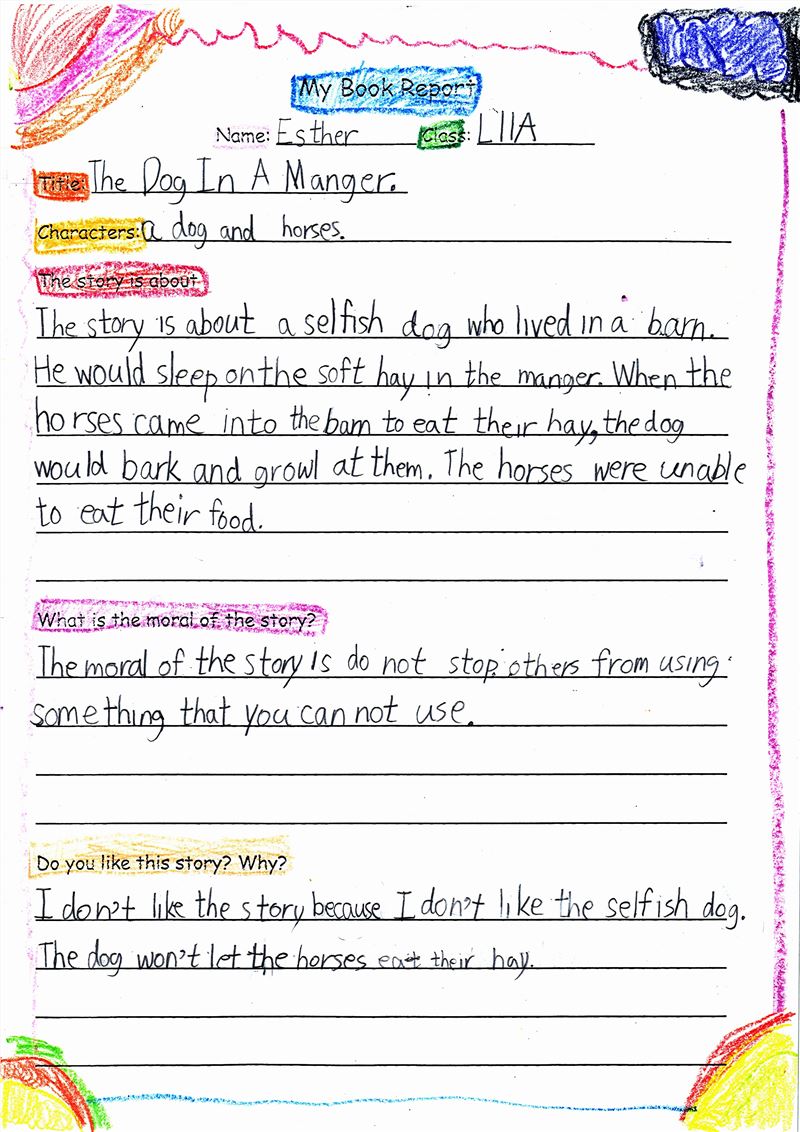 My Book Report
Name: Esther Class: L11A
Title: The Dog In A Manger.
Characters: a dog and horses.
The story is about
The story is about a selfish dog who lived in a barn.
He would sleep on the soft hay in the manger. When the
horses came into the barn to eat their hay, the dog
would bark and growl at them. The horses were unable
to eat their food.
What is the moral of the story?
The moral of the story is do not stop others from using
something that you can not use.
Do you like this story? Why?
I don't like the story because I don't like the selfish dog.
The dog won't let the horses eat their hay.